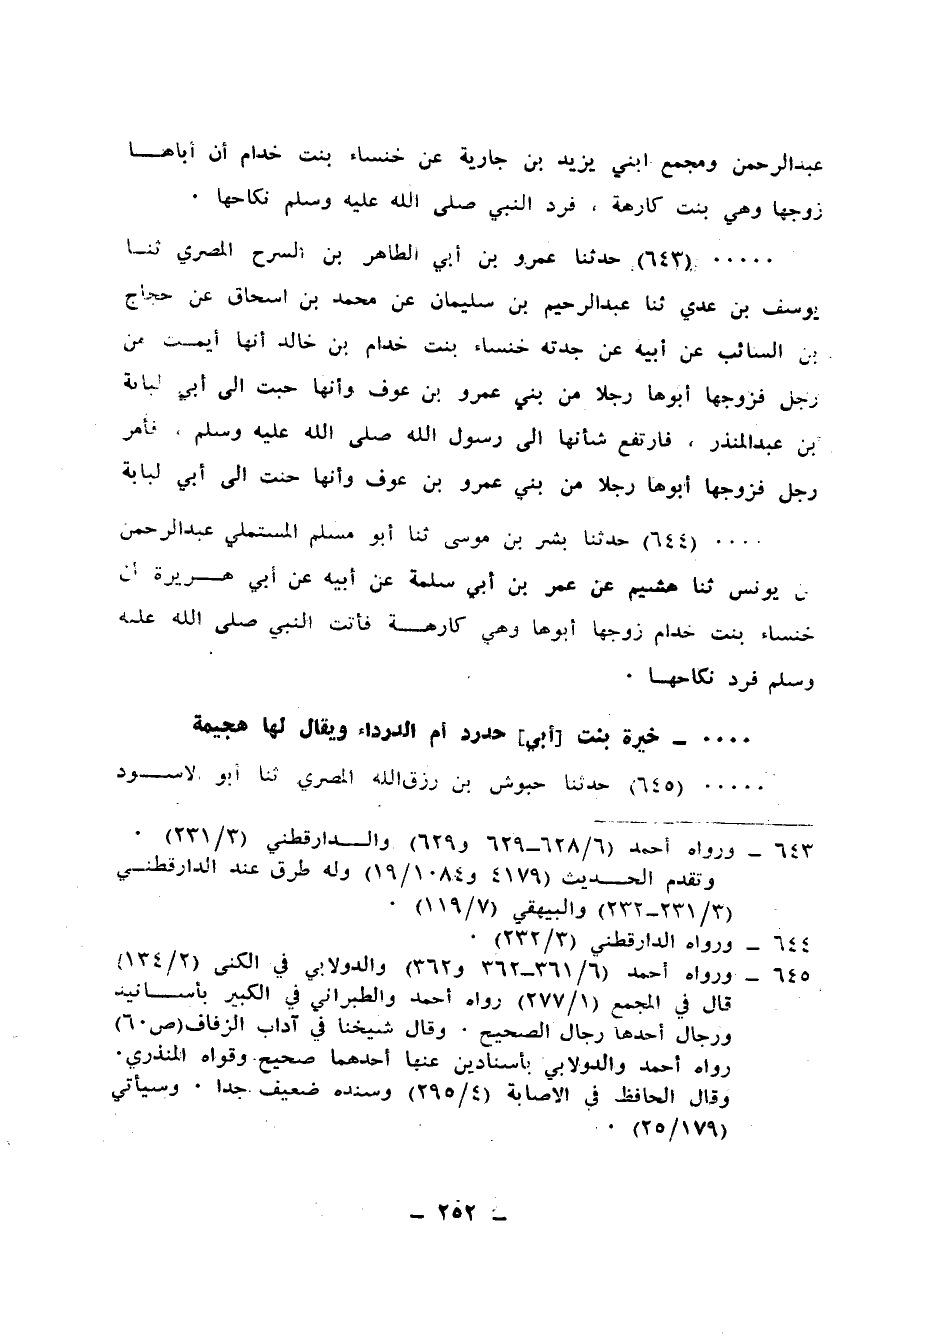 عبدالرحمن ومجمع ابني يزيد بن جارية عن خنساء بنت خدام أن أباهـــا
زوجها وهي بنت كارهة ، فرد النبي صلى الله عليه وسلم نكاحها ٠
٠٠٠٠٠ (٦٤٣) حدثنا عمرو بن أبي الطاهر بن السرح المصري ثنـا
يوسف بن عدي ثنا عبدالرحيم بن سليمان عن محمد بن اسحاق عن حجاج
بن السائب عن أبيه عن جدته خنساء بنت خدام بن خالد أنها أيمـت من
رجل فزوجها أبوها رجلا من بني عمرو بن عوف وأنها حبت الى أبي لبابة
بن عبدالمنذر ، فارتفع شأنها الى رسول الله صلى الله عليه وسلم ، فأمر
رجل فزوجها أبوها رجلا من بني عمرو بن عوف وأنها حنت الى أبي لبابة
٠٠٠٠ (٦٤٤) حدثنا بشر بن موسى ثنا أبو مسلم المستملي عبدالرحمن
بن يونس ثنا هشيم عن عمر بن أبي سلمة عن أبيه عن أبي هـــريرة أن
خنساء بنت خدام زوجها أبوها وهي كارهـــة فأتت النبي صلى الله عليه
وسلم فرد نكاحهـا ٠
٠٠٠٠ ـ خيرة بنت [أبي] حدرد أم الدرداء ويقال لها هجيمة
٠٠٠٠٠ (٦٤٥) حدثنا حبوش بن رزق‌الله المصري ثنا أبو الاســـود
٦٤٣ ـ ورواه أحمد (٦/٦٢٨ـ٦٢٩ و٦٢٩) والـــدارقطني (٣/٢٣١) ٠
وتقدم الحـــديث (٤١٧٩ و١٩/١٠٨٤) وله طرق عند الدارقطنـي
(٣/٢٣١ـ٢٣٢) والبيهقي (٧/١١٩) ٠
٦٤٤ ـ ورواه الدارقطني (٣/٢٣٢) ٠
٦٤٥ ـ ورواه أحمد (٦/٣٦١ـ٣٦٢ و٣٦٢) والدولابي في الكنى (٢/١٣٤)
قال في المجمع (١/٢٧٧) رواه أحمد والطبراني في الكبير بأســـانيد
ورجال أحدها رجال الصحيح ٠ وقال شيخنا في آداب الزفاف(ص٦٠)
رواه أحمد والدولابي بأسنادين عنها أحدهما صحيح وقواه المنذري٠
وقال الحافظ في الاصابة (٤/٢٩٥) وسنده ضعيف جدا ٠ وسيأتي
(٢٥/١٧٩) ٠
ـ ٢٥٢ ـ